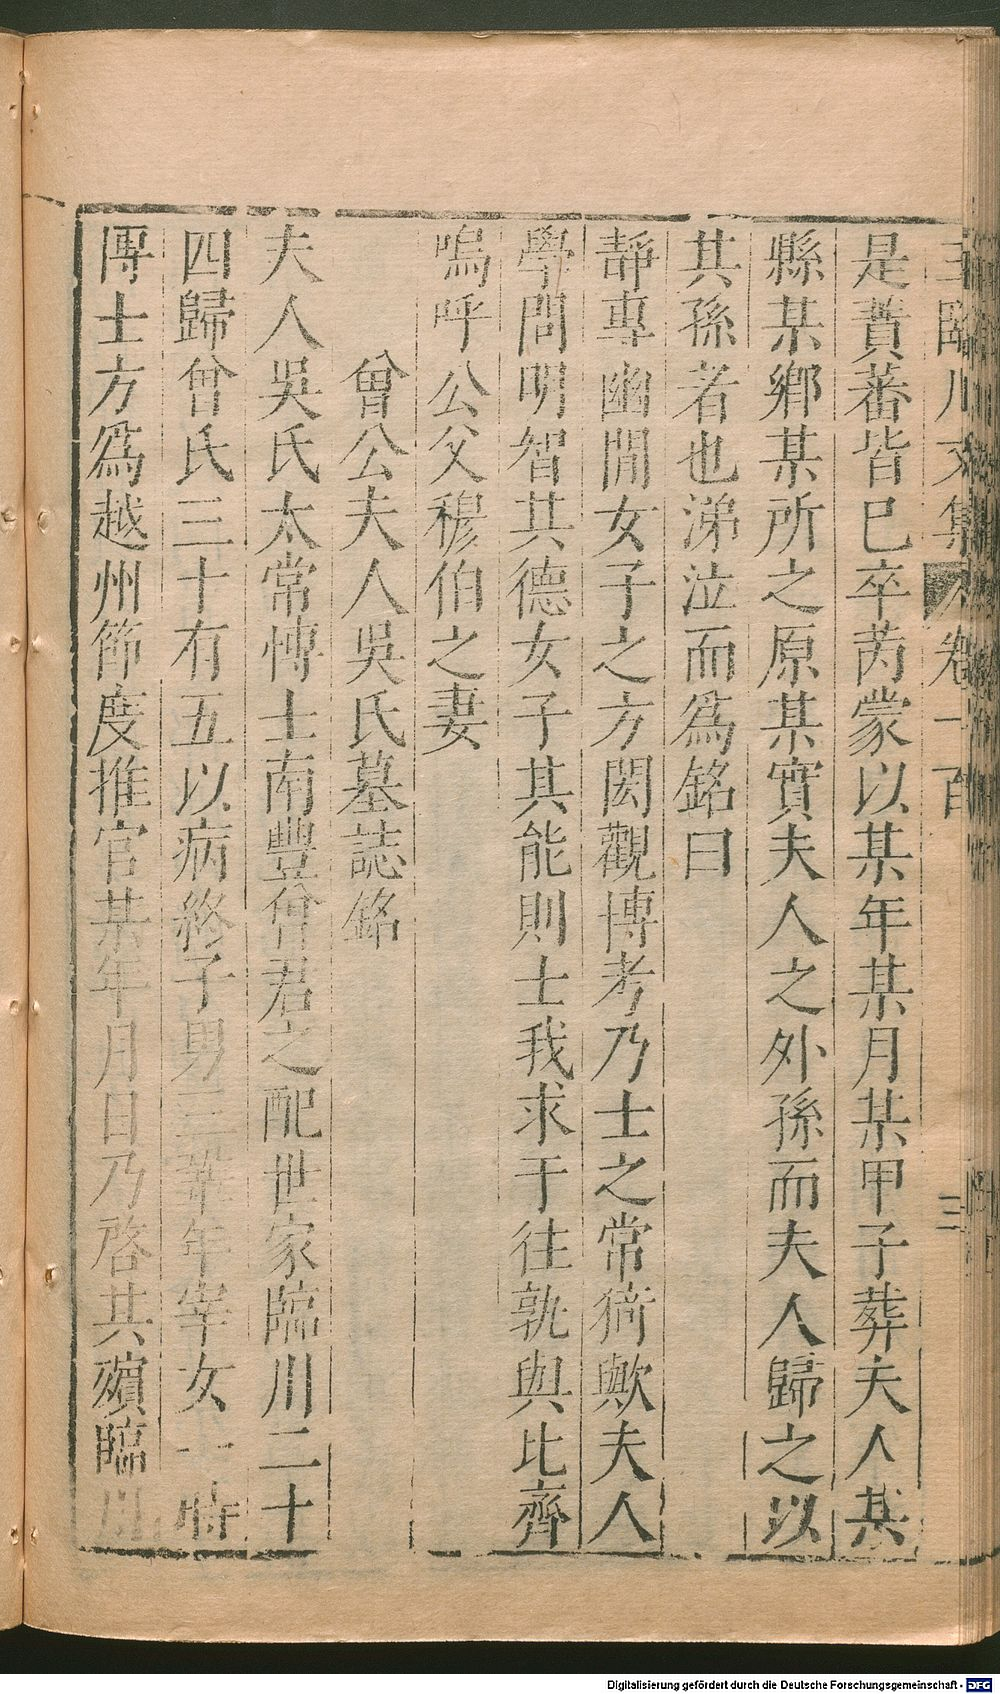 王臨川文集 卷一百
三
是蕡蕃皆已卒芮蒙以某年某月某甲子葬夫人某
縣某鄉某所之原某實夫人之外孫而夫人歸之以
其孫者也涕泣而爲銘曰
靜專幽閒女子之方閎觀博考乃士之常猗歟夫人
學問明智其德女子其能則士我求于往孰與比齊
嗚呼公父穆伯之妻
曾公夫人吳氏墓誌銘
夫人吳氏太常博士南豐曾君之配世家臨川二十
四歸曾氏三十有五以病終子男三鞏牟宰女一時
博士方爲越州節度推官某年月日乃啓其殯臨川
Digitalisierung gefördert durch die Deutsche Forschungsgemeinschaft - DFG